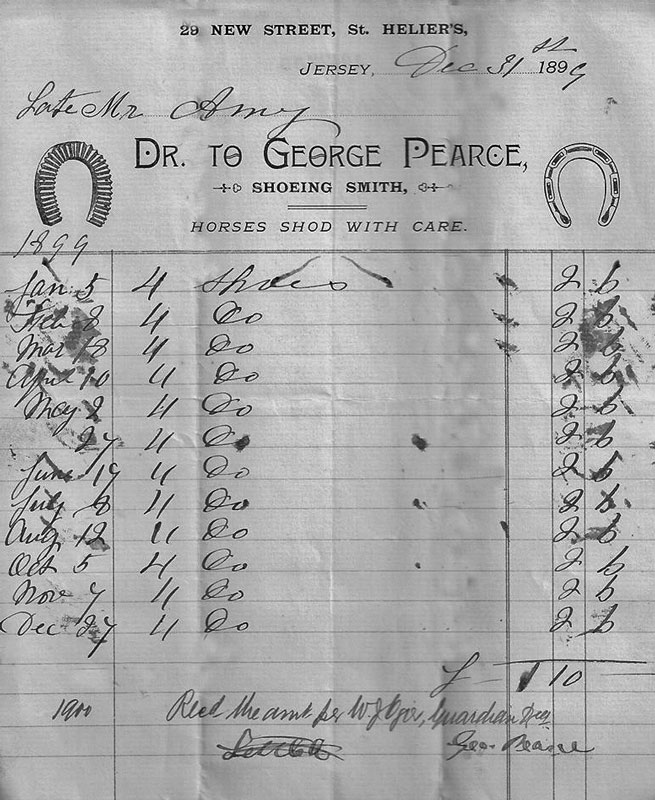 29 NEW STREET, St. HELIER'S,
JERSEY, Dec 31st 1899
Late Mr Amy
DR. TO GEORGE PEARCE,
SHOEING SMITH,
HORSES SHOD WITH CARE.
1899
Jan 5 4 Shoes 2 6
Feb 8 4 Do 2 6
Mar 18 4 Do 2 6
April 10 4 Do 2 6
May 2 4 Do 2 6
27 4 Do 2 6
June 17 4 Do 2 6
July 8 4 Do 2 6
Aug 12 4 Do 2 6
Oct 5 4 Do 2 6
Nov 7 4 Do 2 6
Dec 27 4 Do 2 6
£ 1 10
1900 Recd the amt per W J Guardian
Geo Pearce